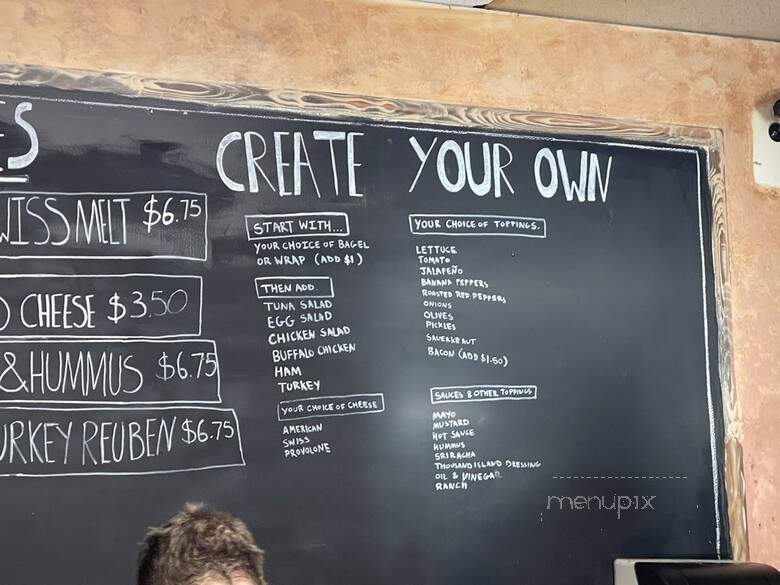 ES
WISS MELT $6.75
D CHEESE $3.50
& HUMMUS $6.75
URKEY REUBEN $6.75
CREATE YOUR OWN
START WITH...
YOUR CHOICE OF BAGEL
OR WRAP (ADD $1)
THEN ADD
TUNA SALAD
EGG SALAD
CHICKEN SALAD
BUFFALO CHICKEN
HAM
TURKEY
YOUR CHOICE OF CHEESE
AMERICAN
SWISS
PROVOLONE
YOUR CHOICE OF TOPPINGS.
LETTUCE
TOMATO
JALAPEÑO
BANANA PEPPERS
ROASTED RED PEPPERS
ONIONS
OLIVES
PICKLES
SAUERKRAUT
BACON (ADD $1.50)
SAUCES & OTHER TOPPINGS
MAYO
MUSTARD
HOT SAUCE
HUMMUS
SRIRACHA
THOUSAND ISLAND DRESSING
OIL & VINEGAR
RANCH
menupix